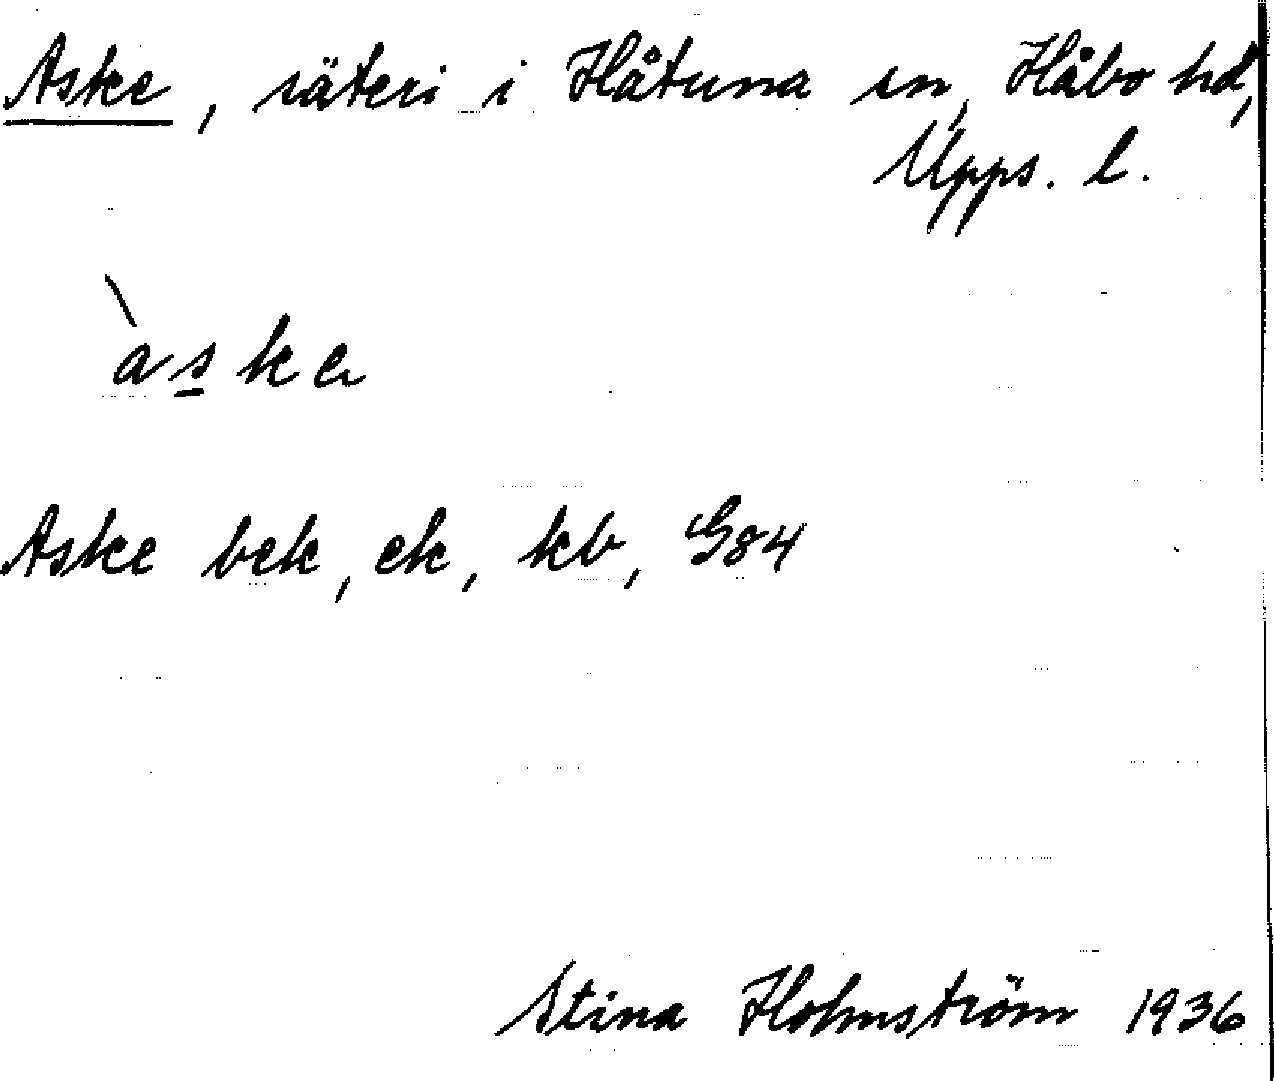 Aske, säteri i Håtuna sn, Håbo hd,
Upps. l.
àske
Aske bek, ek, kb, G84
Stina Holmström 1936